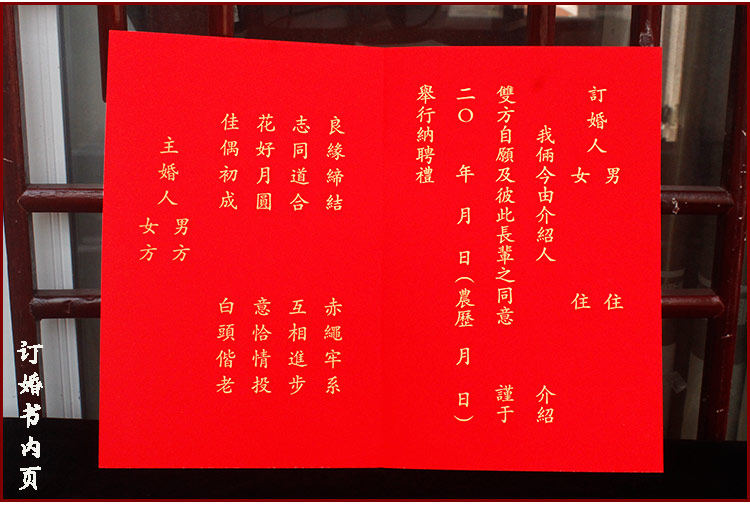 訂婚人 男 住
女 住
我倆今由介紹人 介紹
雙方自願及彼此長輩之同意 謹于
二〇 年 月 日(農歷 月 日)
舉行納聘禮
良緣締結 赤繩牢系
志同道合 互相進步
花好月圓 意恰情投
佳偶初成 白頭偕老
主婚人 男方
女方
订婚书内页